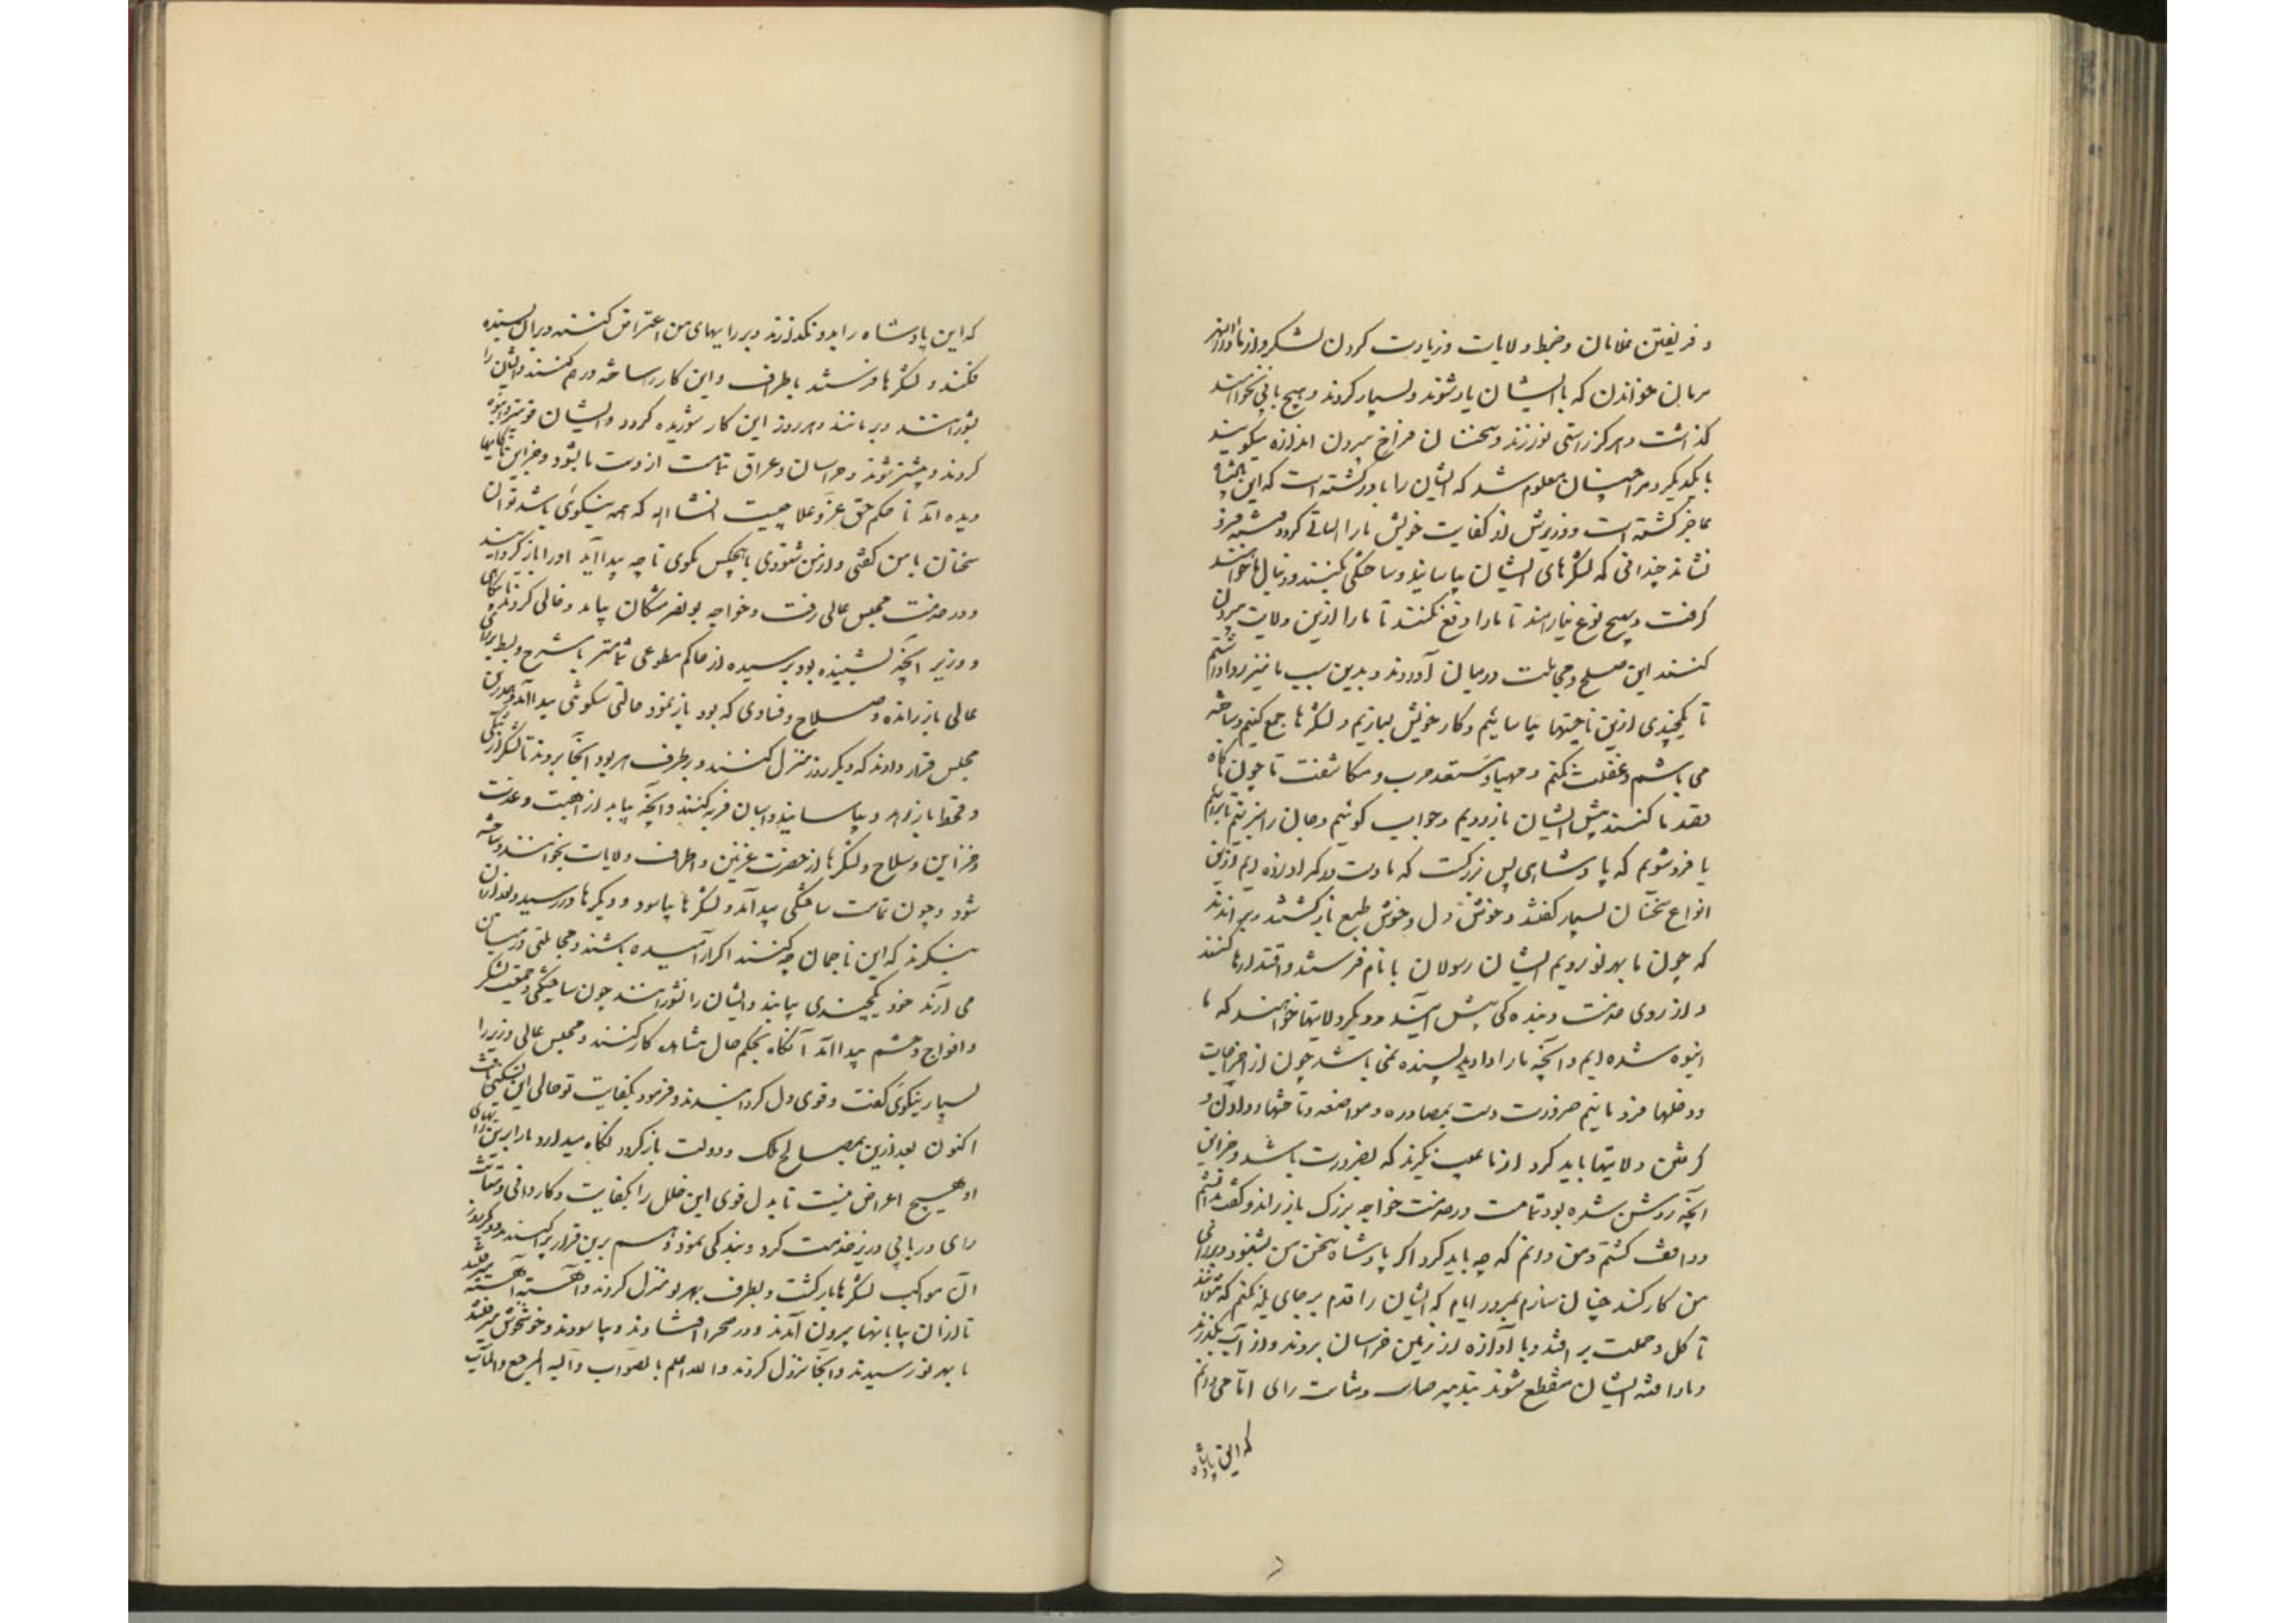 و فریفتن غلامان و ضبط ولایات و زیادت کردن لشکر و از ماوراءالنهر
مردمان خواندن که با ایشان یار شوند و بسیار کردند و هیچ باقی نخواستند
گذاشت و هرگز راستی نورزند و سخنان فراخ بیرون اندازه میگویند
با یکدیگر و مرا چنان معلوم شد که ایشان را باور گشته است که این پادشاه
عاجز گشته است و وزیرش از کفایت خویش ما را گردد فرو
نشاند چندانی که لشکرهای ایشان بیاساید و ساختگی بکنند و دنبال ما خواهند
گرفت و هیچ نوع نیارامند تا ما را دفع نکنند تا ما را ازین ولایت بیرون
کنند این صلح و مجاملت در میان آوردند و بدین سبب ما نیز روا داشتیم
تا یکچندی ازین تاختنها بیاسائیم و کار خویش بسازیم و لشکرها جمع کنیم و ساخته
می باشیم و غفلت نکنیم و مهیا و مستعد حرب و مکاشفت تا چون ناگاه
قصد ما کنند پیش ایشان باز رویم و جواب گوئیم و جان را بزنیم تا برآئیم
یا فرو شویم که پادشاهی بس بزرگست که ما دست در کمر او زده ایم ازین
انواع سخنان بسیار گفتند و خوش دل و خوش طبع بازگشتند و براندند
که چون ما بهر نو رویم ایشان رسولان با نام فرستند و اقتدارها کنند
و از روی خدمت و بنده گی پیش آیند و دیگر ولایتها خواهند که ما
انبوه شده ایم و آنچه ما را داده اید بسنده نمی باشد چون از اخراجات
و دخلها فرو مانیم ضرورت دست بمصادره و مواضعه و تاختنها و دادن و
گرفتن ولایتها باید کرد از ما عیب نگیرند که بضرورت باشد و جز این
آنچه روشن شده بود تمامت در خدمت خواجه بزرگ باز راند و گفت دانستم
و واقف گشتم و من دانم که چه باید کرد اگر پادشاه سخن من بشنود و برای
من کار کند چنان سازم بمرور ایام که ایشان را قدم بر جای یله نکنم که نهند
تا کل و جملت بر افتند و یا آواره از زمین خراسان بروند و از آب بگذرند
و ما را فتنه ایشان منقطع شوند بتدبیر صائب و ثبات رای اما می دانم
که این پادشاه
که این پادشاه را بدو نگذارند و بر رایهای من اعتراض کنند و بران بسنده
نکنند و لشکرها فرستند باطراف و این کار ساخته در هم کنند و ایشان را
بشورانند و برمانند و هر روز این کار شوریده گردد و ایشان قویتر و انبوه
گردند و چشتر شوند و خراسان و عراق تمامت از دست ما بشود و جز این ناکامیها
دیده آید تا حکم حق عز و علا چیست انشاالله که همه نیکوئی باشد تو آن
سخنان با من گفتی و از من شنودی با هیچکس مگوی تا چه پیدا آید او را باز گردانیدند
و در خدمت مجلس عالی رفت و خواجه بونصر مشکان بیامد و خالی کردند
و وزیر آنچه بشنیده بود و پرسیده از حاکم مطوعی تمامتر با شرح و بسط برای
عالی باز رانده و صلاح و فسادی که بود باز نمود حالتی سکوتی پیدا آمد و هم درین
مجلس قرار دادند که دیگر روز منزل کنند و بر طرف هریو آنجا بروند تا لشکر از تنگی
و قحط باز رهد و بیاساید و اسبان فربه کنند و آنچه بباید از اهبت و عدت
و خزاین و سلاح و لشکرها از حضرت غزنین و اطراف ولایات بخواهند و ساخته
شود و چون تمامت ساختگی پیدا آمد و لشکرها بیاسود و دیگرها در رسید و بعد ازان
بنگرند که این ناجمان چه کنند اگر آرامیده باشند و مجاملتی در میان
می آرند خود یکچندی بپایند و ایشان را نشورانند چون ساختگی و جمعیت لشکر
و افواج و حشم پیدا آمد آنگاه بحکم حال مشاهده کار کنند و مجلس عالی وزیر را
بسیار نیکوئی گفت و قوی دل گردانیدند و فرمود بکفایت تو حالی این تسکینی یافت
اکنون بعد ازین بمصالح ملک و دولت باز گردد نگاه میدارد ما را برین رایهای
او هیچ اعراض نیست تا بدل قوی این خلل را بکفایت و کاردانی و متانت
رای دریابی وزیر خدمت کرد و بندگی نمود و هم برین قرار پراکندند و دیگر روز
آن مواکب لشکرها بازگشت و بطرف بهریو منزل کردند و آهسته آهسته میرفتند
تا ازان بیابانها بیرون آمدند و در صحرا افتادند و بیاسودند و خوش خوش میرفتند
تا بهریو رسیدند و آنجا نزول کردند والله اعلم بالصواب و الیه المرجع والمآب